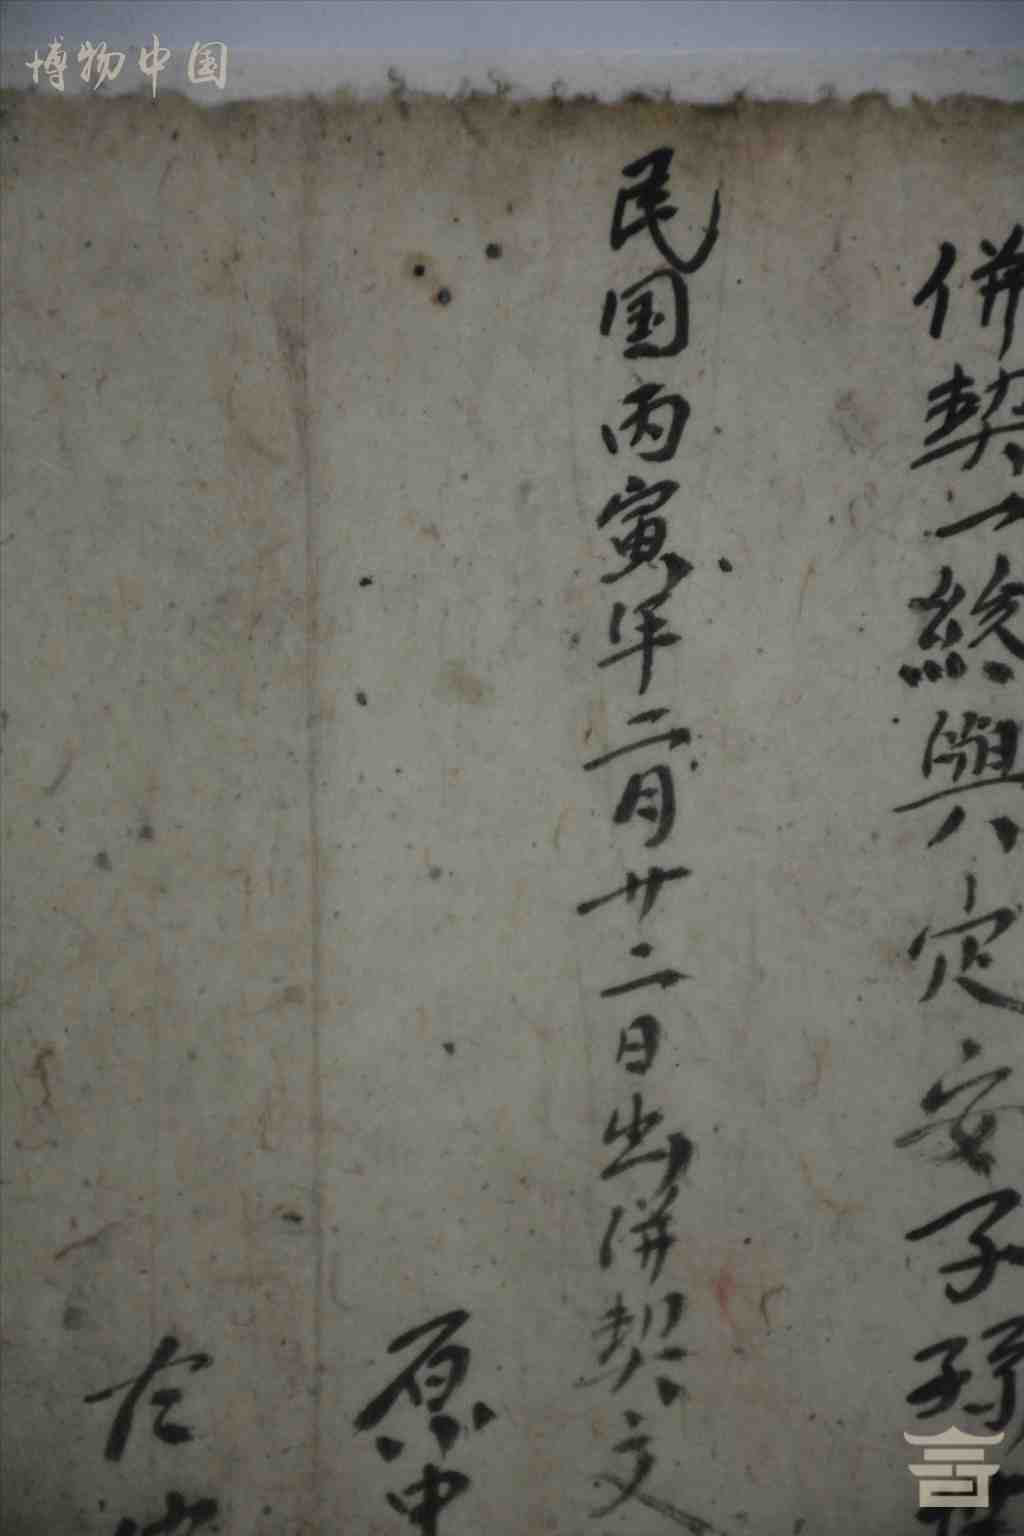 博物中国
併契一縂與定安子孫
民国丙寅年二月廿二日出併契文
原中